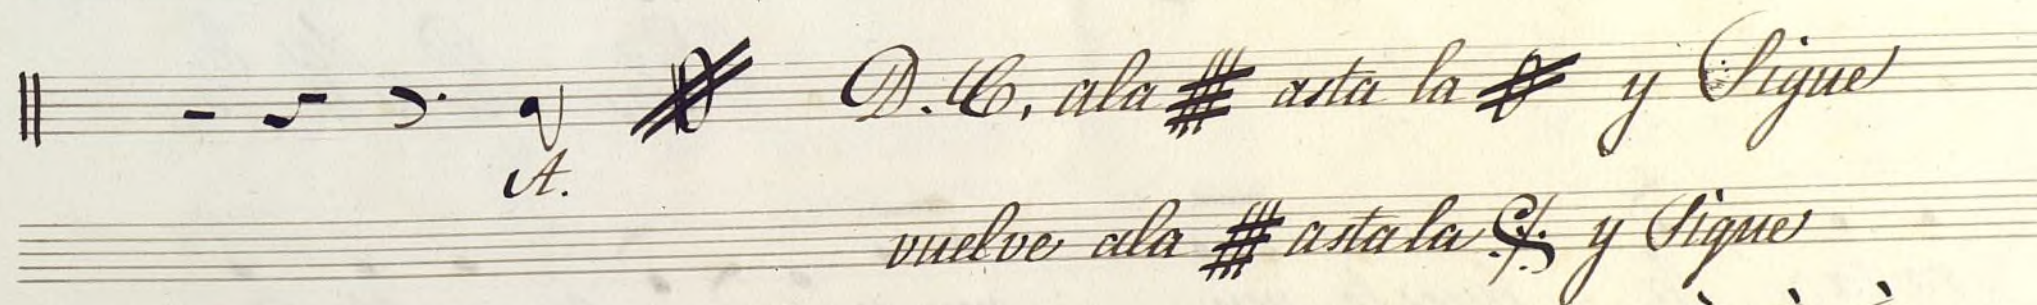 D.C. ala asta la y Sigue
A.
vuelve ala asta la y Sigue